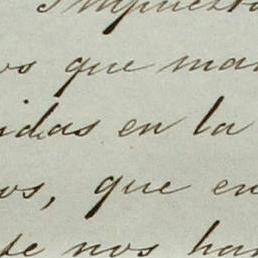 Impuesto
os que man
idas en la
os, que en
te nos han